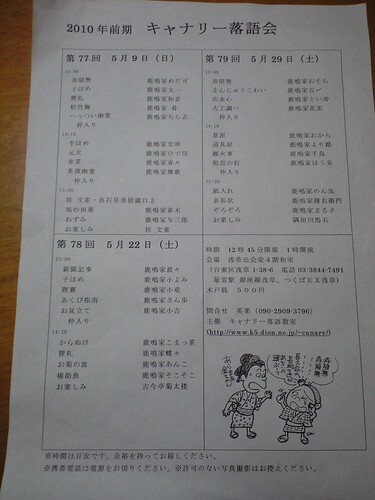 2010年前期 キャナリー落語会
第77回 5月9日（日）
13:00
寿限無 鹿鳴家めだ可
子ほめ 鹿鳴家太一
狸札 鹿鳴家和音
松竹梅 鹿鳴家
へっつい幽霊 鹿鳴家ちら志
仲入り
14:10
牛ほめ 鹿鳴家
元犬 鹿鳴家ひで坊
青菜 鹿鳴家春々
英酒幽霊 鹿鳴家舞歌
仲入り
桂 文雀・高石昇進披露口上
馬の田楽 鹿鳴家春木
ねずみ 鹿鳴家り三郎
お楽しみ 桂 文雀
第78回 5月22日（土）
13:00
新聞記事 鹿鳴家
子ほめ 鹿鳴家小よみ
狸賽 鹿鳴家小竜
あくび指南 鹿鳴家さん歩
お見立て 鹿鳴家小吉
仲入り
14:20
からぬけ 鹿鳴家こまっ茶
狸札 鹿鳴家蝶々
お菊の皿 鹿鳴家あんこ
権助魚 鹿鳴家そこそこ
お楽しみ 古今亭菊太楼
第79回 5月29日（土）
13:00
寿限無 鹿鳴家おそら
まんじゅうこわい 鹿鳴家百〆
出来心 鹿鳴家とい寿
大工調べ 鹿鳴家花実
仲入り
14:10
鹿鳴家おから
道具屋 鹿鳴家より路
鹿鳴家千鳥
鹿鳴家ほう楽
仲入り
紙入れ 鹿鳴家のん気
表彰状 鹿鳴家樽右衛門
ぞろぞろ 鹿鳴家まる子
お楽しみ 隅田川馬石
時間 12時45分開場 1時開演
会場 浅草公会堂4階和室
（台東区浅草1-38-6 電話03-3844-7491
最寄駅 銀座線浅草、つくばEX浅草）
木戸銭 500円
問合せ 英楽（090-2909-3796）
主催 キャナリー落語教室
(http://www.k5.dion.ne.jp/~canary/)
寿限無
寿限無
※時間は目安です。余裕を持ってお越しください。
※携帯電話は電源をお切りください。※許可のない写真撮影はお控えください。